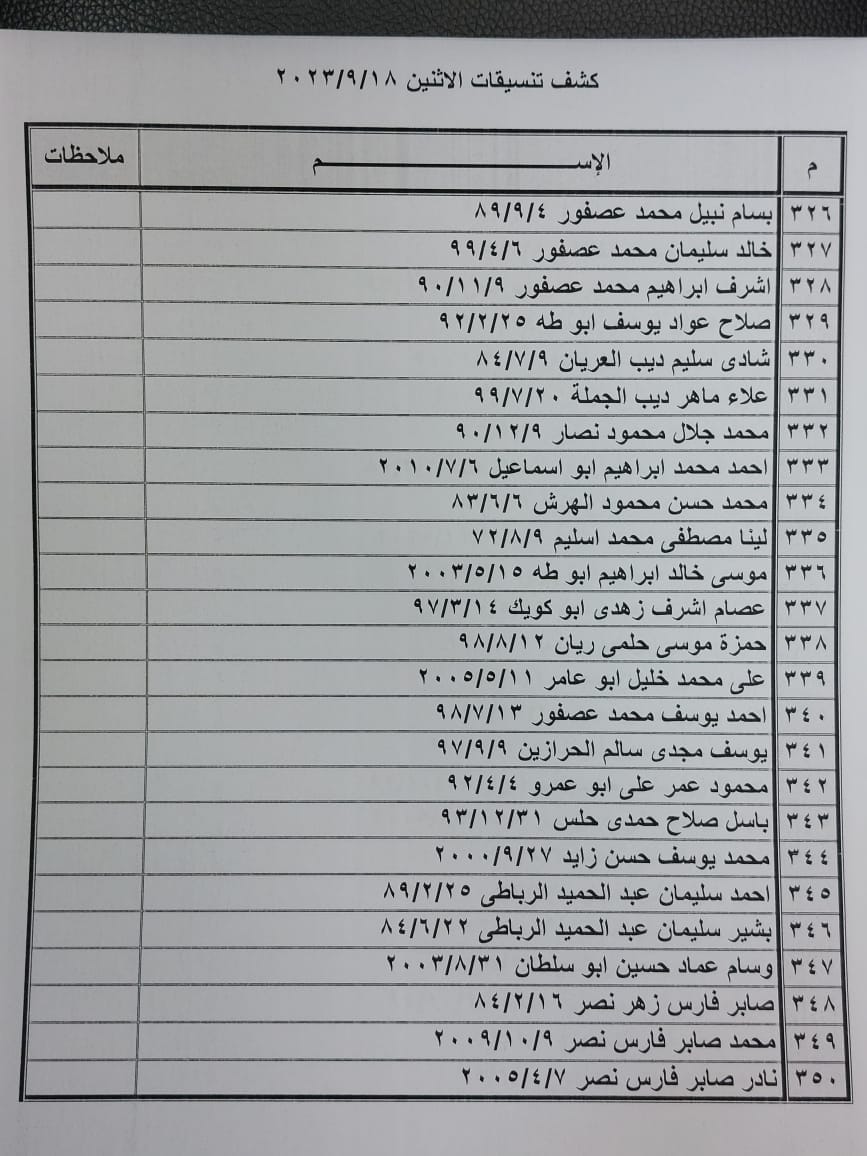 كشف تنسيقات الاثنين ٢٠٢٣/٩/١٨
م الإســــــــم ملاحظات
٣٢٦ بسام نبيل محمد عصفور ٨٩/٩/٤
٣٢٧ خالد سليمان محمد عصفور ٩٩/٤/٦
٣٢٨ اشرف ابراهيم محمد عصفور ٩٠/١١/٩
٣٢٩ صلاح عواد يوسف ابو طه ٩٢/٢/٢٥
٣٣٠ شادى سليم ديب العريان ٨٤/٧/٩
٣٣١ علاء ماهر ديب الجملة ٩٩/٧/٢٠
٣٣٢ محمد جلال محمود نصار ٩٠/١٢/٩
٣٣٣ احمد محمد ابراهيم ابو اسماعيل ٢٠١٠/٧/٦
٣٣٤ محمد حسن محمود الهرش ٨٣/٦/٦
٣٣٥ لينا مصطفى محمد اسليم ٧٢/٨/٩
٣٣٦ موسى خالد ابراهيم ابو طه ٢٠٠٣/٥/١٥
٣٣٧ عصام اشرف زهدى ابو كويك ٩٧/٣/١٤
٣٣٨ حمزة موسى حلمى ريان ٩٨/٨/١٢
٣٣٩ على محمد خليل ابو عامر ٢٠٠٥/٥/١١
٣٤٠ احمد يوسف محمد عصفور ٩٨/٧/١٣
٣٤١ يوسف مجدى سالم الحرازين ٩٧/٩/٩
٣٤٢ محمود عمر على ابو عمرو ٩٢/٤/٤
٣٤٣ باسل صلاح حمدى حلس ٩٣/١٢/٣١
٣٤٤ محمد يوسف حسن زايد ٢٠٠٠/٩/٢٧
٣٤٥ احمد سليمان عبد الحميد الرباطى ٨٩/٢/٢٥
٣٤٦ بشير سليمان عبد الحميد الرباطى ٨٤/٦/٢٢
٣٤٧ وسام عماد حسين ابو سلطان ٢٠٠٣/٨/٣١
٣٤٨ صابر فارس زهر نصر ٨٤/٢/١٦
٣٤٩ محمد صابر فارس نصر ٢٠٠٩/١٠/٩
٣٥٠ نادر صابر فارس نصر ٢٠٠٥/٤/٧